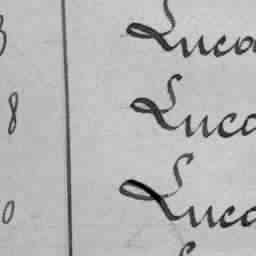 Luca
8 Luca
0 Luca